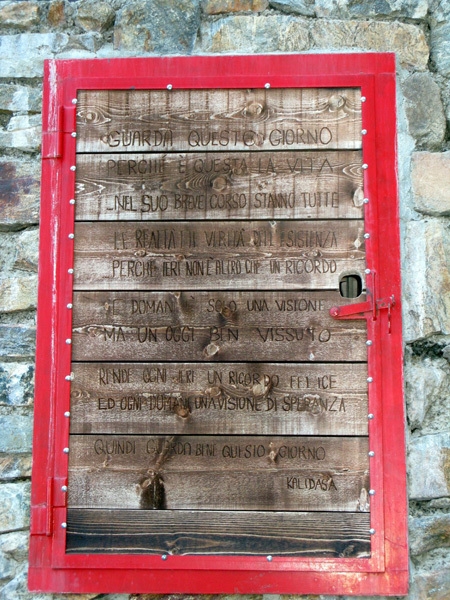 GUARDA QUESTO GIORNO
PERCHÈ È QUESTA LA VITA
NEL SUO BREVE CORSO STANNO TUTTE
LE REALTA E VERITÀ DELL'ESISTENZA
PERCHÈ IERI NON È ALTRO CHE UN RICORDO
E DOMANI È SOLO UNA VISIONE
MA UN OGGI BEN VISSUTO
RENDE OGNI IERI UN RICORDO FELICE
ED OGNI DOMANI UNA VISIONE DI SPERANZA
QUINDI GUARDA BENE QUESTO GIORNO
KALIDASA